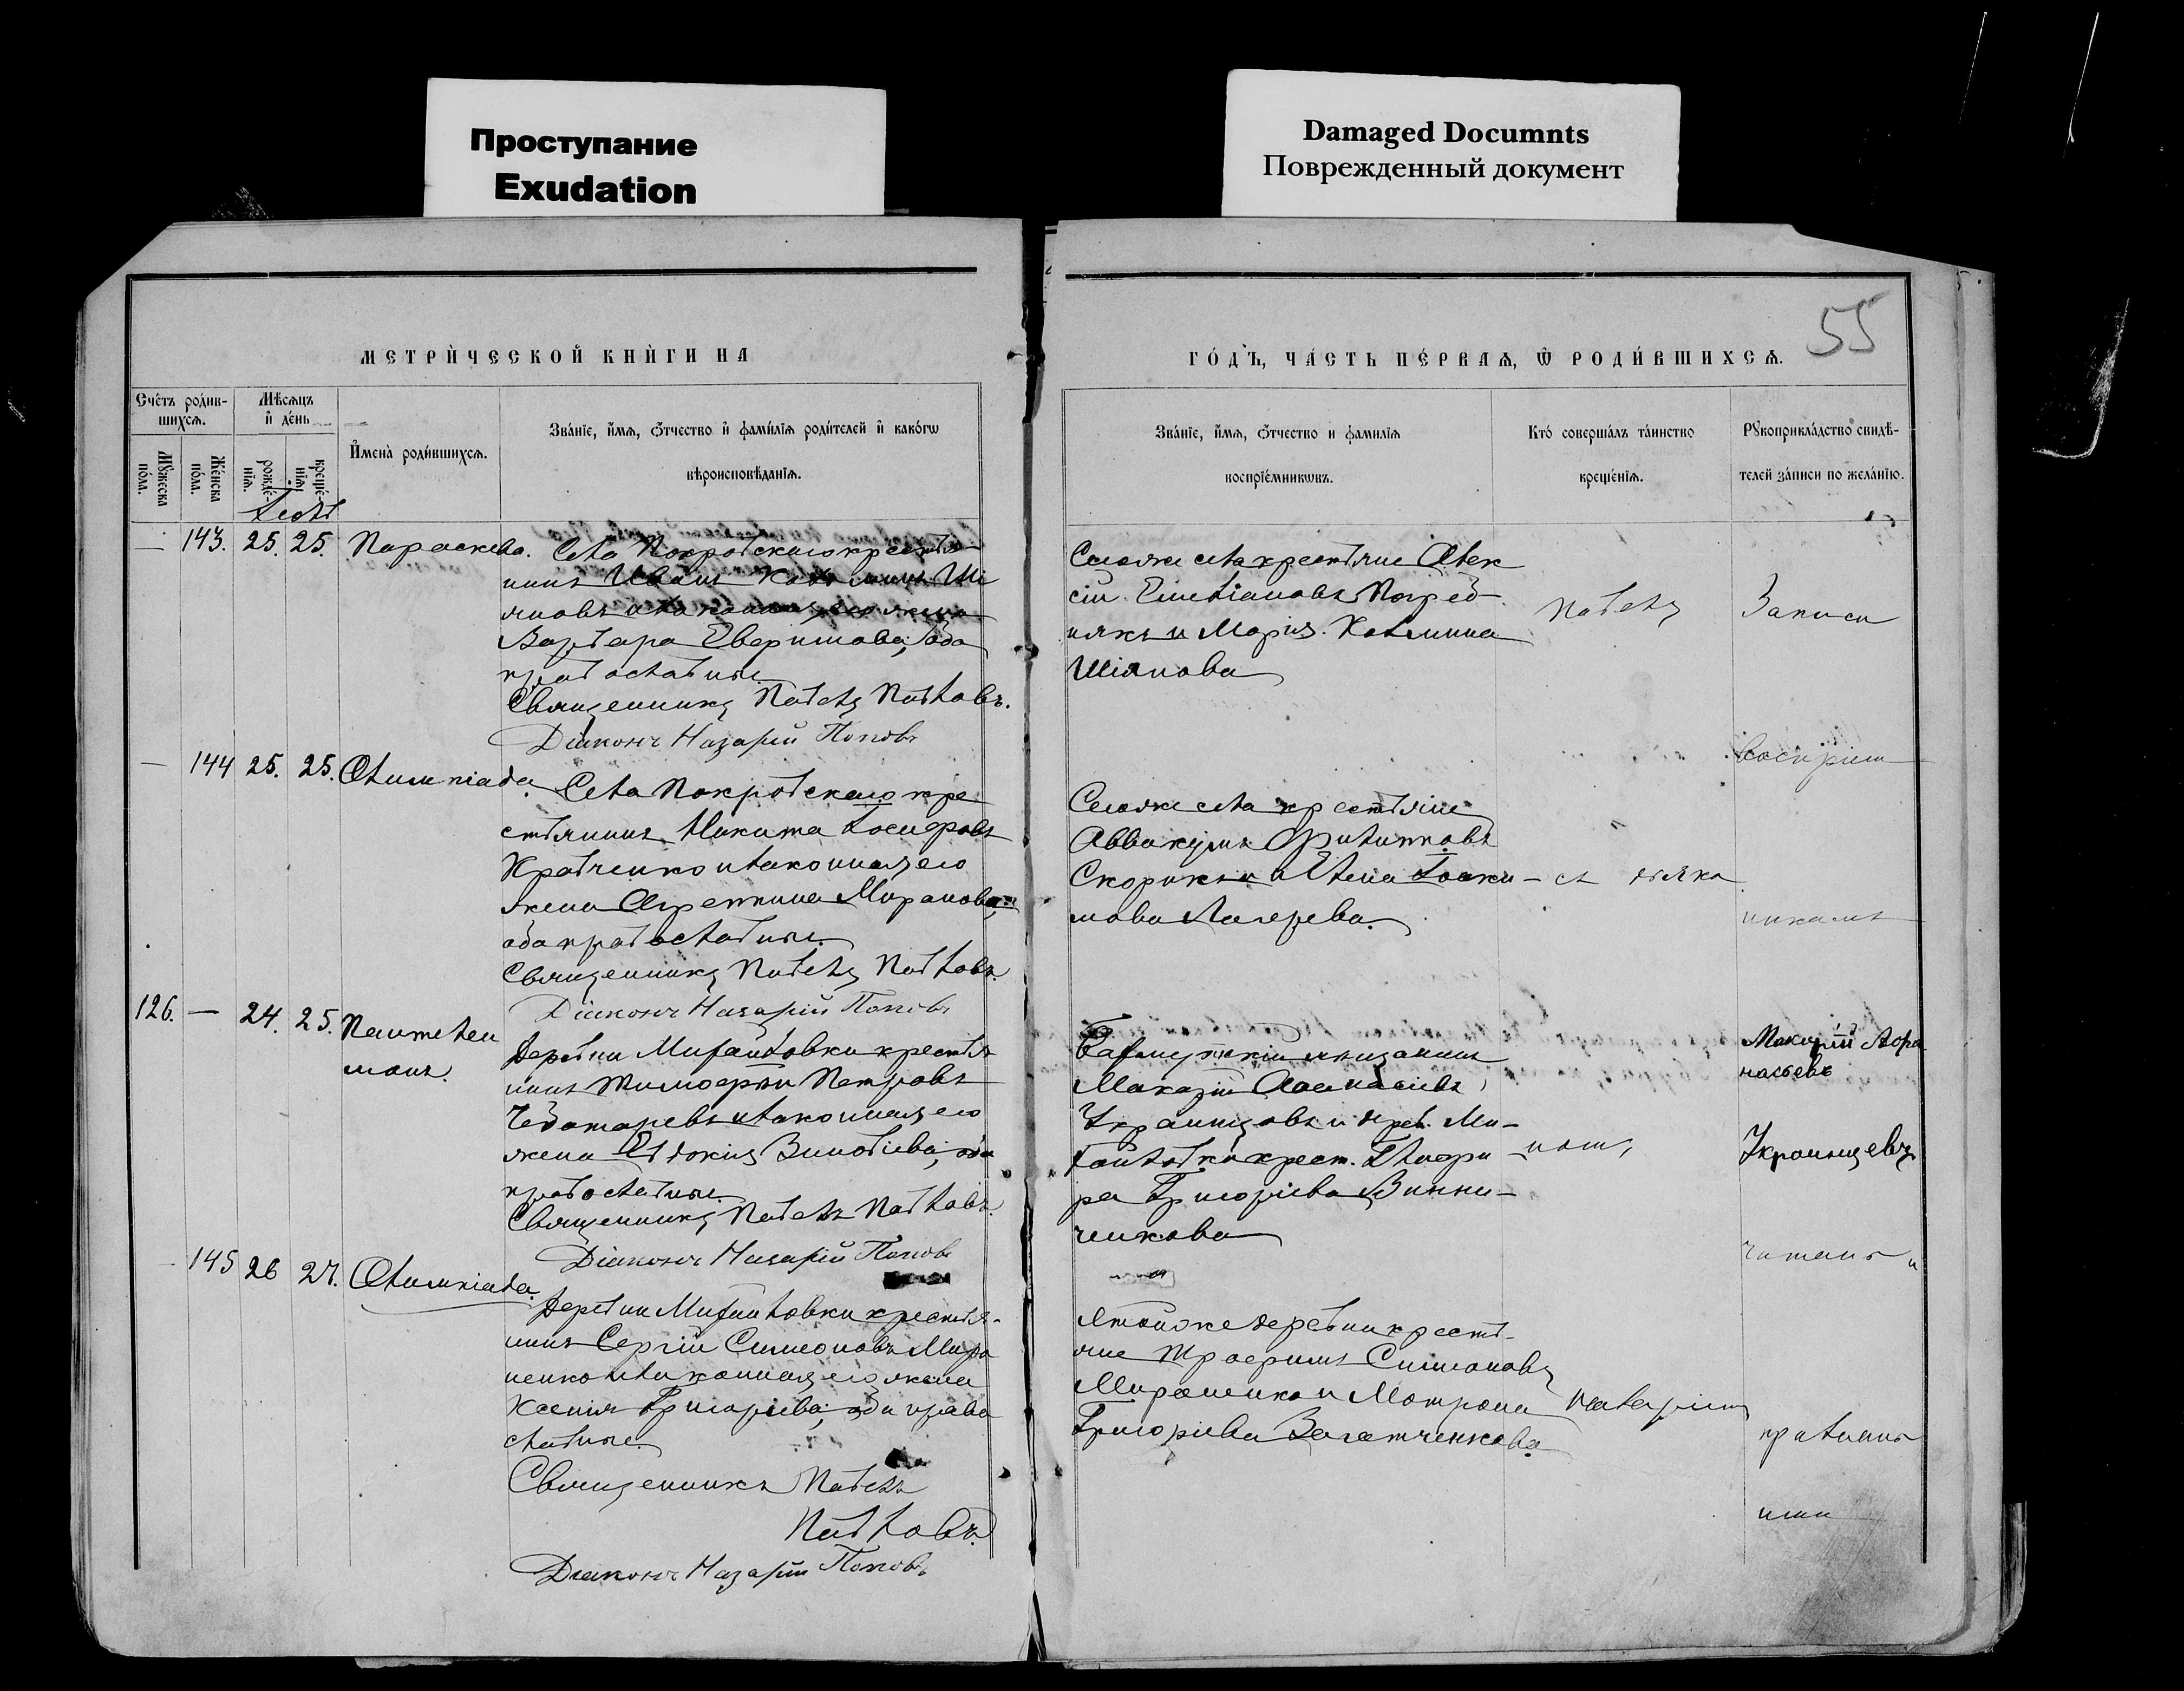 Проступание
Exudation
Damaged Documnts
Поврежденный документ
55
МЕТРИ́ЧЕСКОЙ КНИ́ГИ НА
ГО́ДЪ, ЧА́СТЬ ПЕ́РВАѦ, Ѿ РОДИ́ВШИХСѦ.
Сче́тъ роди́в-
шихсѧ.
Мѣ́сѧцъ
и҆ де́нь
Мꙋ́жеска
по́ла.
Же́нска
по́ла.
рожде́-
нїѧ.
креще́-
нїѧ.
И҆мена̀ роди́вшихсѧ.
Зва́нїе, и҆́мѧ, ѻ҆́тчество и҆ фами́лїѧ роди́телей и҆ како́гѡ
вѣроисповѣ́данїѧ.
Зва́нїе, и҆́мѧ, ѻ҆́тчество и фами́лїѧ
воспрїе́мникѡвъ.
Кто̀ соверша́лъ та́инство
креще́нїѧ.
Рꙋкоприкла́дство свидѣ́-
телей за́писи по жела́нїю.
143. 25. 25. Параскева.
Села Покровскаго крестья-
нинъ Иванъ Козьминъ Ши
яновъ и законная его жена
Варвара Еверитова, оба
православные.
Священникъ Павелъ Павловъ.
Діаконъ Назарій Поповъ
Сегоже села крестьяне Алек
сій Емеліановъ Погреб-
някъ и Марія Козмина
Шіянова
Павелъ
Записи
144 25. 25. Олимпіада.
Села Покровскаго кре
стьянинъ Никита Іосифовъ
Кравченко и законная его
жена Агрепина Миронова,
оба православные.
Священникъ Павелъ Павловъ.
Діаконъ Назарій Поповъ
Сегоже села крестьяне
Аввакумъ Филиповъ
Скорикъ и Елена Іоаки-
мова Лагерева.
съ дьяко
воспріем
никамъ
126. — 24. 25. Пантелеи
монъ.
Деревни Михайловки крестья
нинъ Тимофей Петровъ
Чеботаревъ и законная его
жена Евдокія Зиновіева, оба
православные.
Священникъ Павелъ Павловъ.
Діаконъ Назарій Поповъ
Бахмутскій мещанинъ
Макарій Афанасіевъ
Украинцовъ и дерев. Ми-
хайловки крест. Глафи
ра Григоріева Винни-
ченкова
номъ
Макарій Афа
насьевъ
Украинцевъ
145 26 27. Олимпіада.
Деревни Михайловки крестья-
нинъ Сергій Симеоновъ Миро
ненко и законная его жена
Ксенія Григоріева, оба право
славные.
Священникъ Павелъ
Павловъ.
Діаконъ Назарій Поповъ
Тойже деревни кресть-
яне Трофимъ Симеоновъ
Мироненко и Матрона
Григоріева
Назаріем
читаны и
правильны
ими